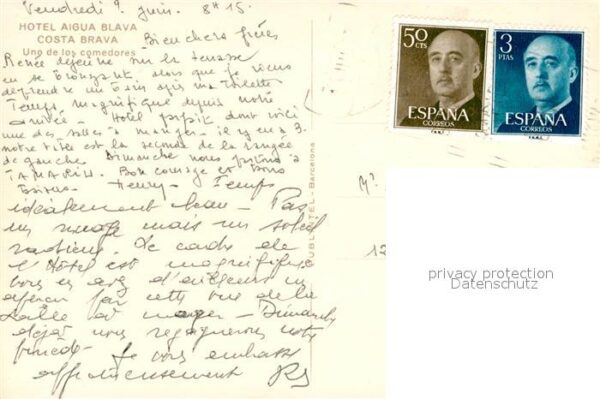 Vendredi 9 Juin. 8H15.
HOTEL AIGUA BLAVA
COSTA BRAVA
Uno de los comedores
Bien chers frères
Renée déjeune sur la terrasse
en se bronzant, alors que je viens
de prendre un bain après ma toilette
Temps magnifique depuis notre
arrivée - Hotel dont voici
une des salles à manger - il y en a 3.
notre table est la seconde de la rangée
de gauche. Dimanche nous à
TAMARIU. Bon courage et bons
Henry - Temps
idéalement beau - Pas
un nuage mais un soleil
radieux. Le cadre de
l'Hôtel est magnifique
vous en avez d'ailleurs un
aperçu par cette vue de la
salle à manger - Dimanche
déjà nous regagnerons notre
Je vous embrasse
affectueusement
PUBLINTEL - Barcelona
50
CTS
ESPAÑA
CORREOS
3
PTAS
ESPAÑA
CORREOS
M?
12
privacy protection
Datenschutz